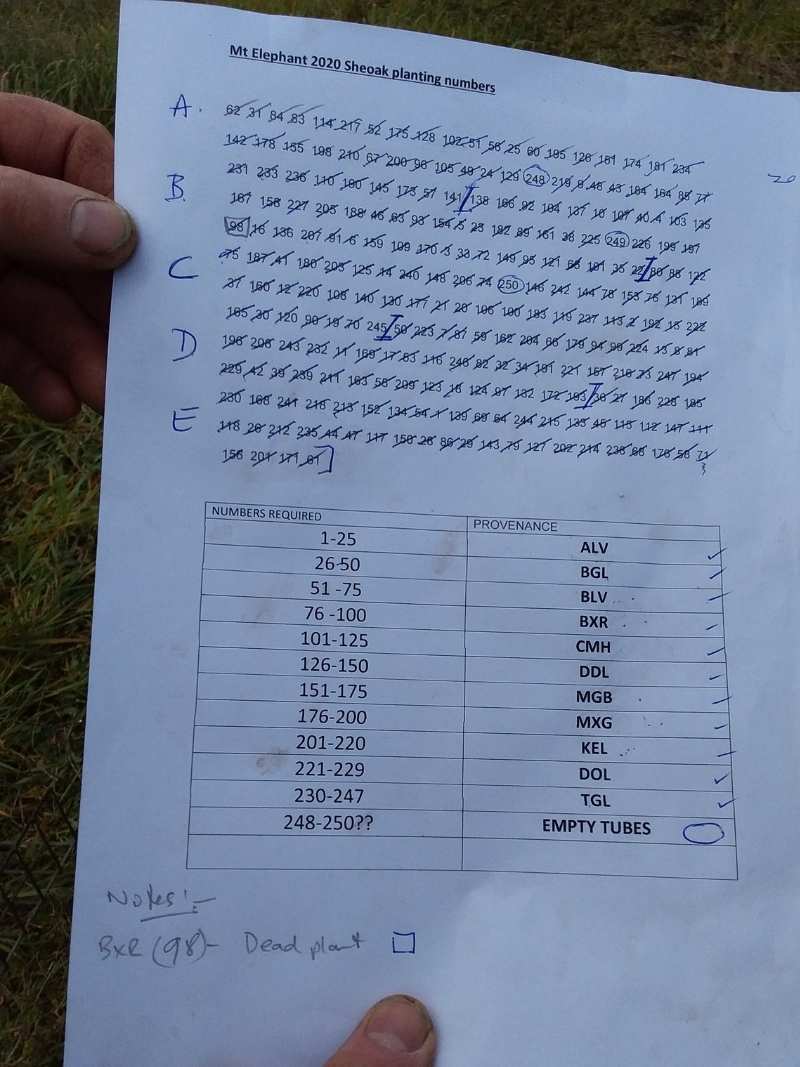 Mt Elephant 2020 Sheoak planting numbers
A. 62 31 84 83 114 217 52 175 128 102 51 56 25 60 185 126 161 174 181 234
142 178 155 198 210 67 200 96 105 49 24 129 248 219 9 48 43 184 164 88 77
B. 231 233 236 110 180 145 173 57 141 138 166 92 104 137 10 107 40 4 103 135
167 158 227 205 188 46 63 93 154 5 23 182 89 161 36 225 249 226 199 197
98 16 136 207 91 6 159 109 170 3 33 72 149 95 121 68 101 35 22 80 85 122
C 75 187 41 180 203 125 14 240 148 206 74 250 146 242 144 78 153 76 131 189
37 160 12 220 106 140 130 177 21 28 108 100 183 119 237 113 2 192 18 222
165 30 120 90 19 70 245 50 223 7 87 59 162 204 66 179 94 99 224 15 8 81
D 196 208 243 232 11 169 17 83 116 246 82 32 34 191 221 157 218 73 247 194
229 42 39 239 211 163 58 209 123 18 124 97 132 172 193 38 27 186 228 195
230 168 241 216 213 152 134 54 1 139 69 64 244 215 133 45 115 112 147 111
E 118 20 212 235 44 47 117 150 26 86 29 143 79 127 202 214 238 65 176 56 71
156 201 171 61
NUMBERS REQUIRED PROVENANCE
1-25 ALV
26-50 BGL
51 -75 BLV
76 -100 BXR
101-125 CMH
126-150 DDL
151-175 MGB
176-200 MXG
201-220 KEL
221-229 DOL
230-247 TGL
248-250?? EMPTY TUBES
Notes:-
BXR (98)- Dead plant